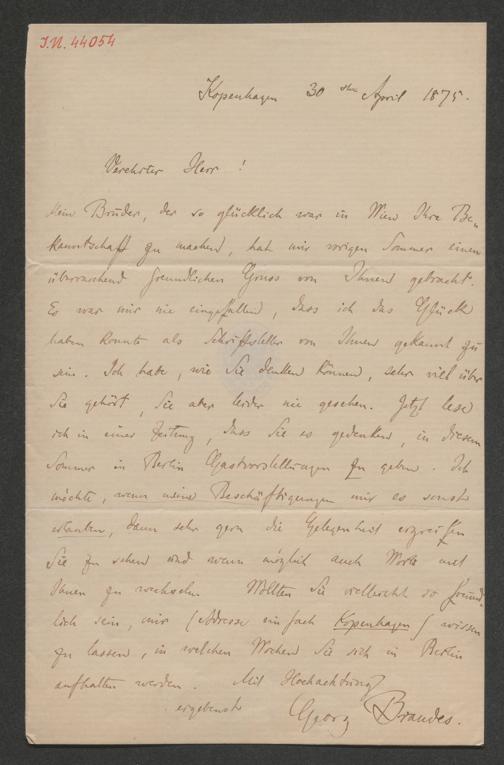 J.N. 44054
Kopenhagen 30 sten April 1875.
Verehrter Herr!
Mein Bruder, der so glücklich war in Wien Ihre Be-
kanntschaft zu machen, hat mir vorigen Sommer einen
überraschend freundlichen Gruss von Ihnen gebracht.
Es war mir nie eingefallen, dass ich das Glück
haben konnte als Schriftsteller von Ihnen gekannt zu
sein. Ich habe, wie Sie denken können, sehr viel über
Sie gehört, Sie aber leider nie gesehen. Jetzt lese
ich in einer Zeitung, dass Sie es gedenken, in diesem
Sommer in Berlin Gastvorstellungen zu geben. Ich
möchte, wenn meine Beschäftigungen mir es sonst
erlauben, dann sehr gern die Gelegenheit ergreifen
Sie zu sehen und wenn möglich auch Worte mit
Ihnen zu wechseln. Wollten Sie vielleicht so freund-
lich sein, mir (Adresse einfach Kopenhagen) wissen
zu lassen, in welchen Wochen Sie sich in Berlin
aufhalten werden. Mit Hochachtung
ergebenst Georg Brandes.